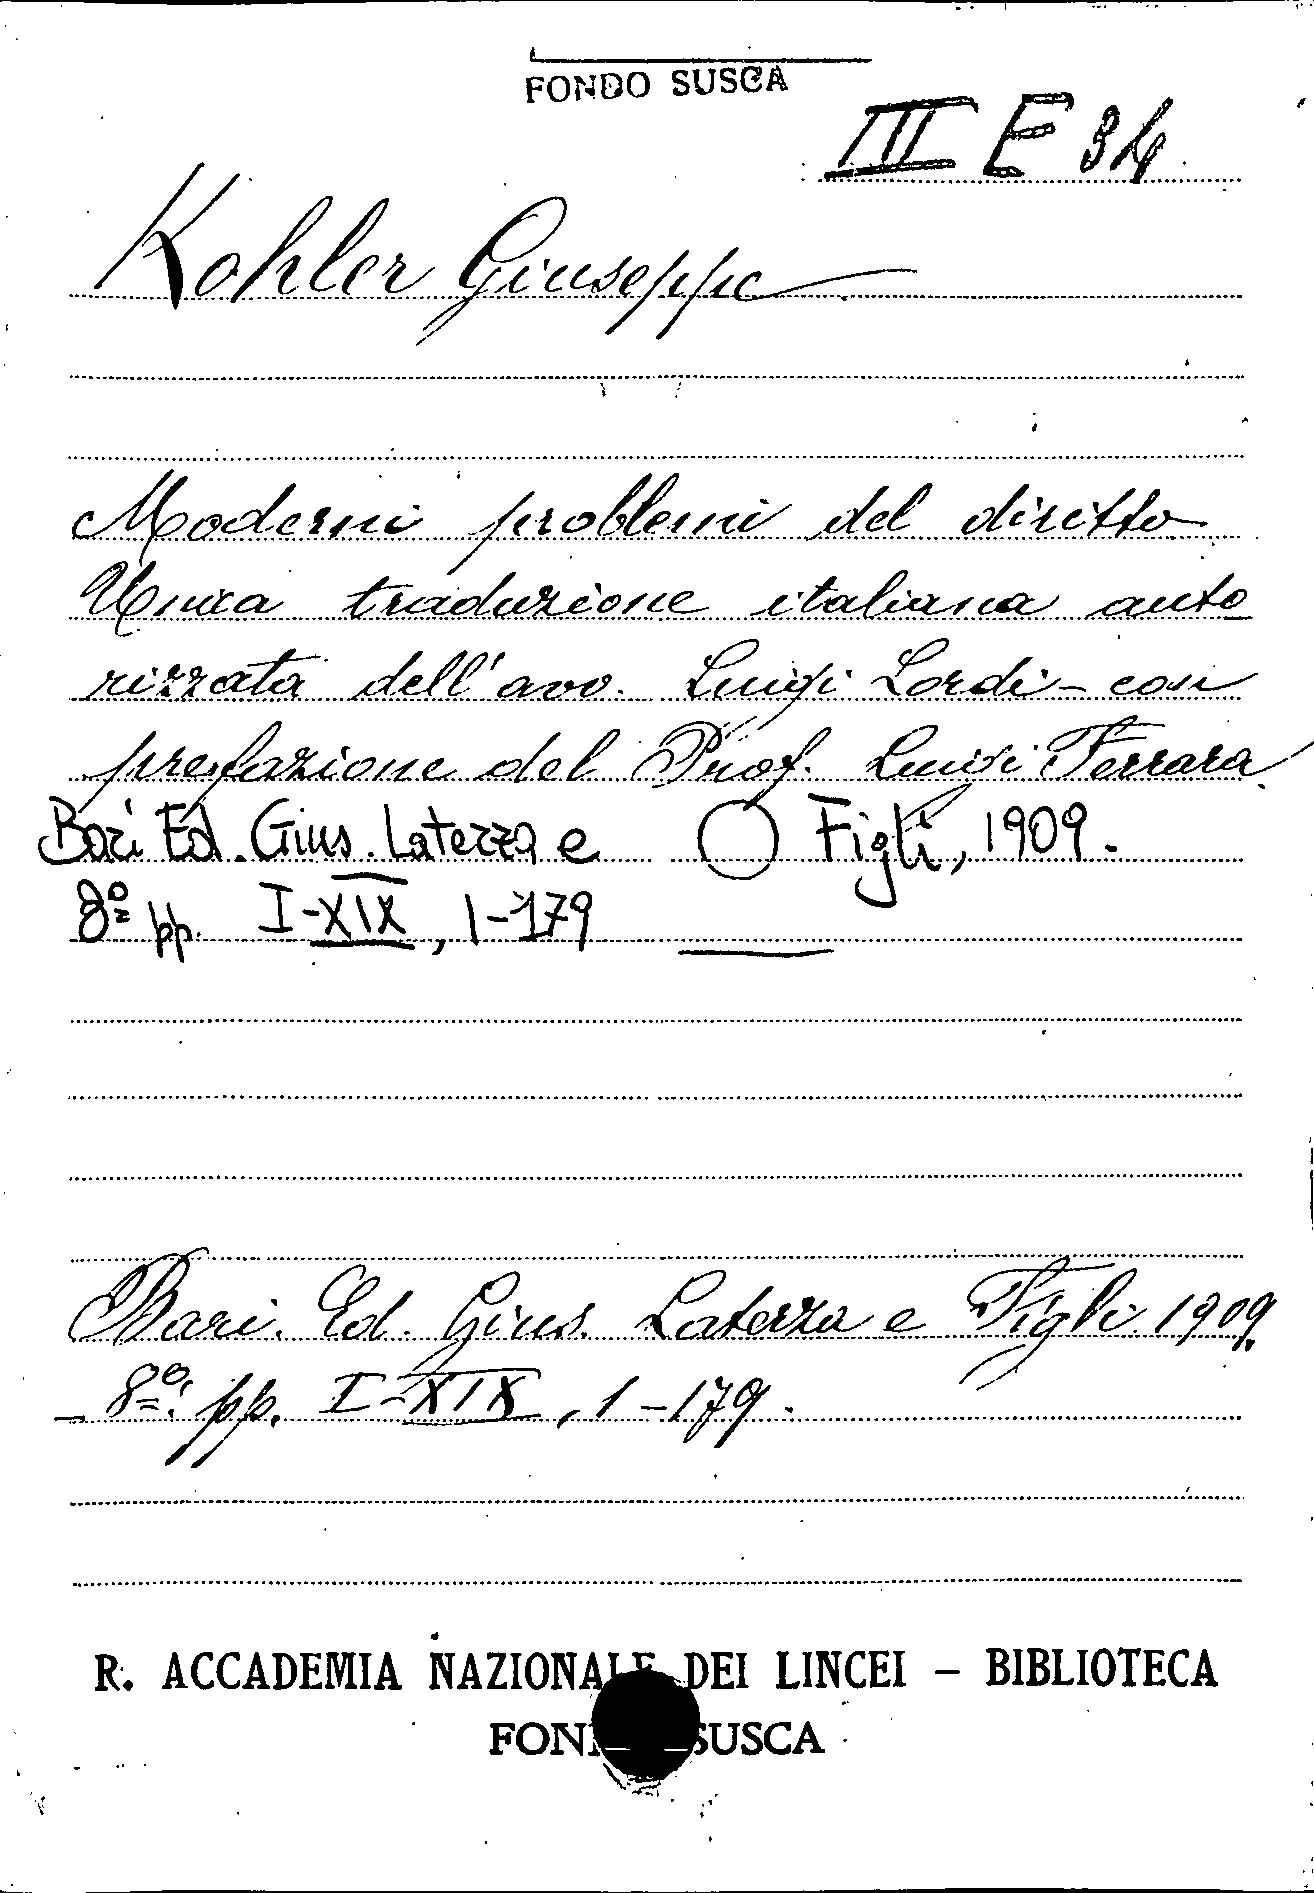 FONDO SUSCA
III E 34
Kohler Giuseppe
Moderni problemi del diritto
Unica traduzione italiana auto
rizzata dell'avv. Luigi Lordi - con
prefazione del Prof. Luigi Ferrara
Bari Ed. Gius. Laterza e Figli, 1909.
8º pp. I-XIX, 1-179
Bari. Ed. Gius. Laterza e Figli 1909.
8º: pp. I-XIX, 1-179.
R. ACCADEMIA NAZIONALE DEI LINCEI – BIBLIOTECA
FONDO SUSCA